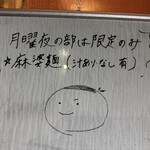 月曜夜の部は限定のみ
☆麻婆麺(汁ありなし有)